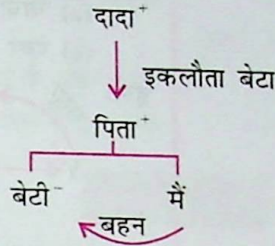 दादा⁺
इकलौता बेटा
पिता⁺
बेटी⁻ मैं
बहन